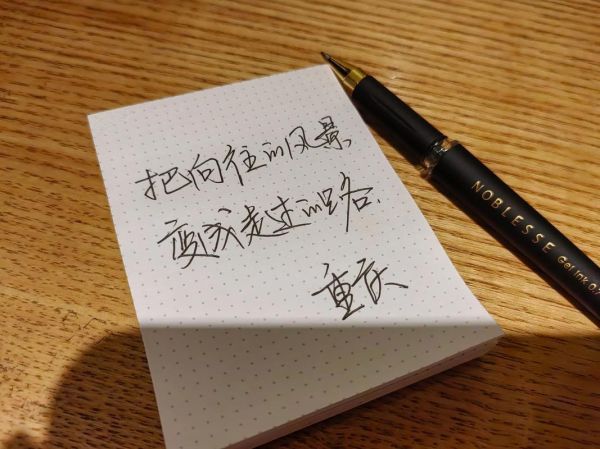 把向往的风景,
变成走过的路.
重庆
NOBLESSE Gel Ink 0.7